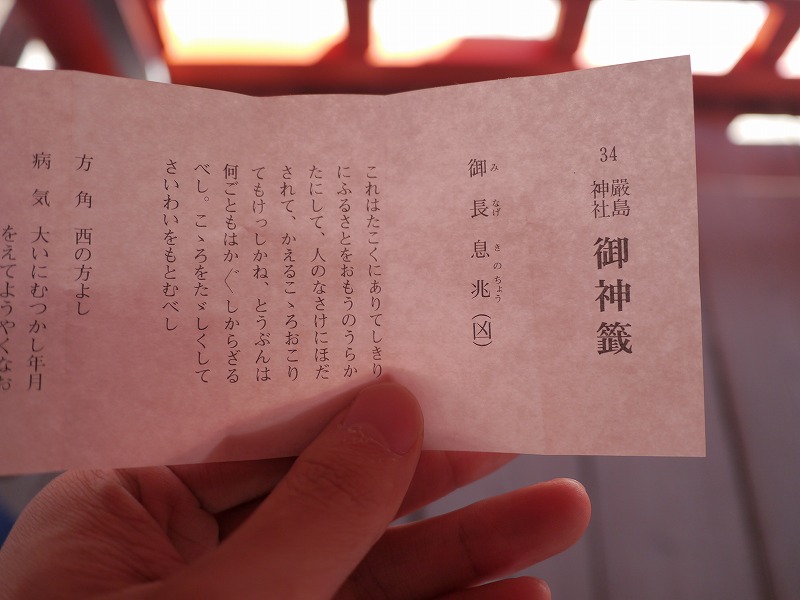 34
嚴島神社 御神籤
御長息兆(凶)
み なげ きの ちょう
これはたこくにありてしきり
にふるさとをおもうのうらか
たにして、人のなさけにほだ
されて、かえるこゝろおこり
てもけっしかね、とうぶんは
何ごともはか〴〵しからざる
べし。こゝろをたゞしくして
さいわいをもとむべし
方角 西の方よし
病気 大いにむつかし年月
をえてようやくなお